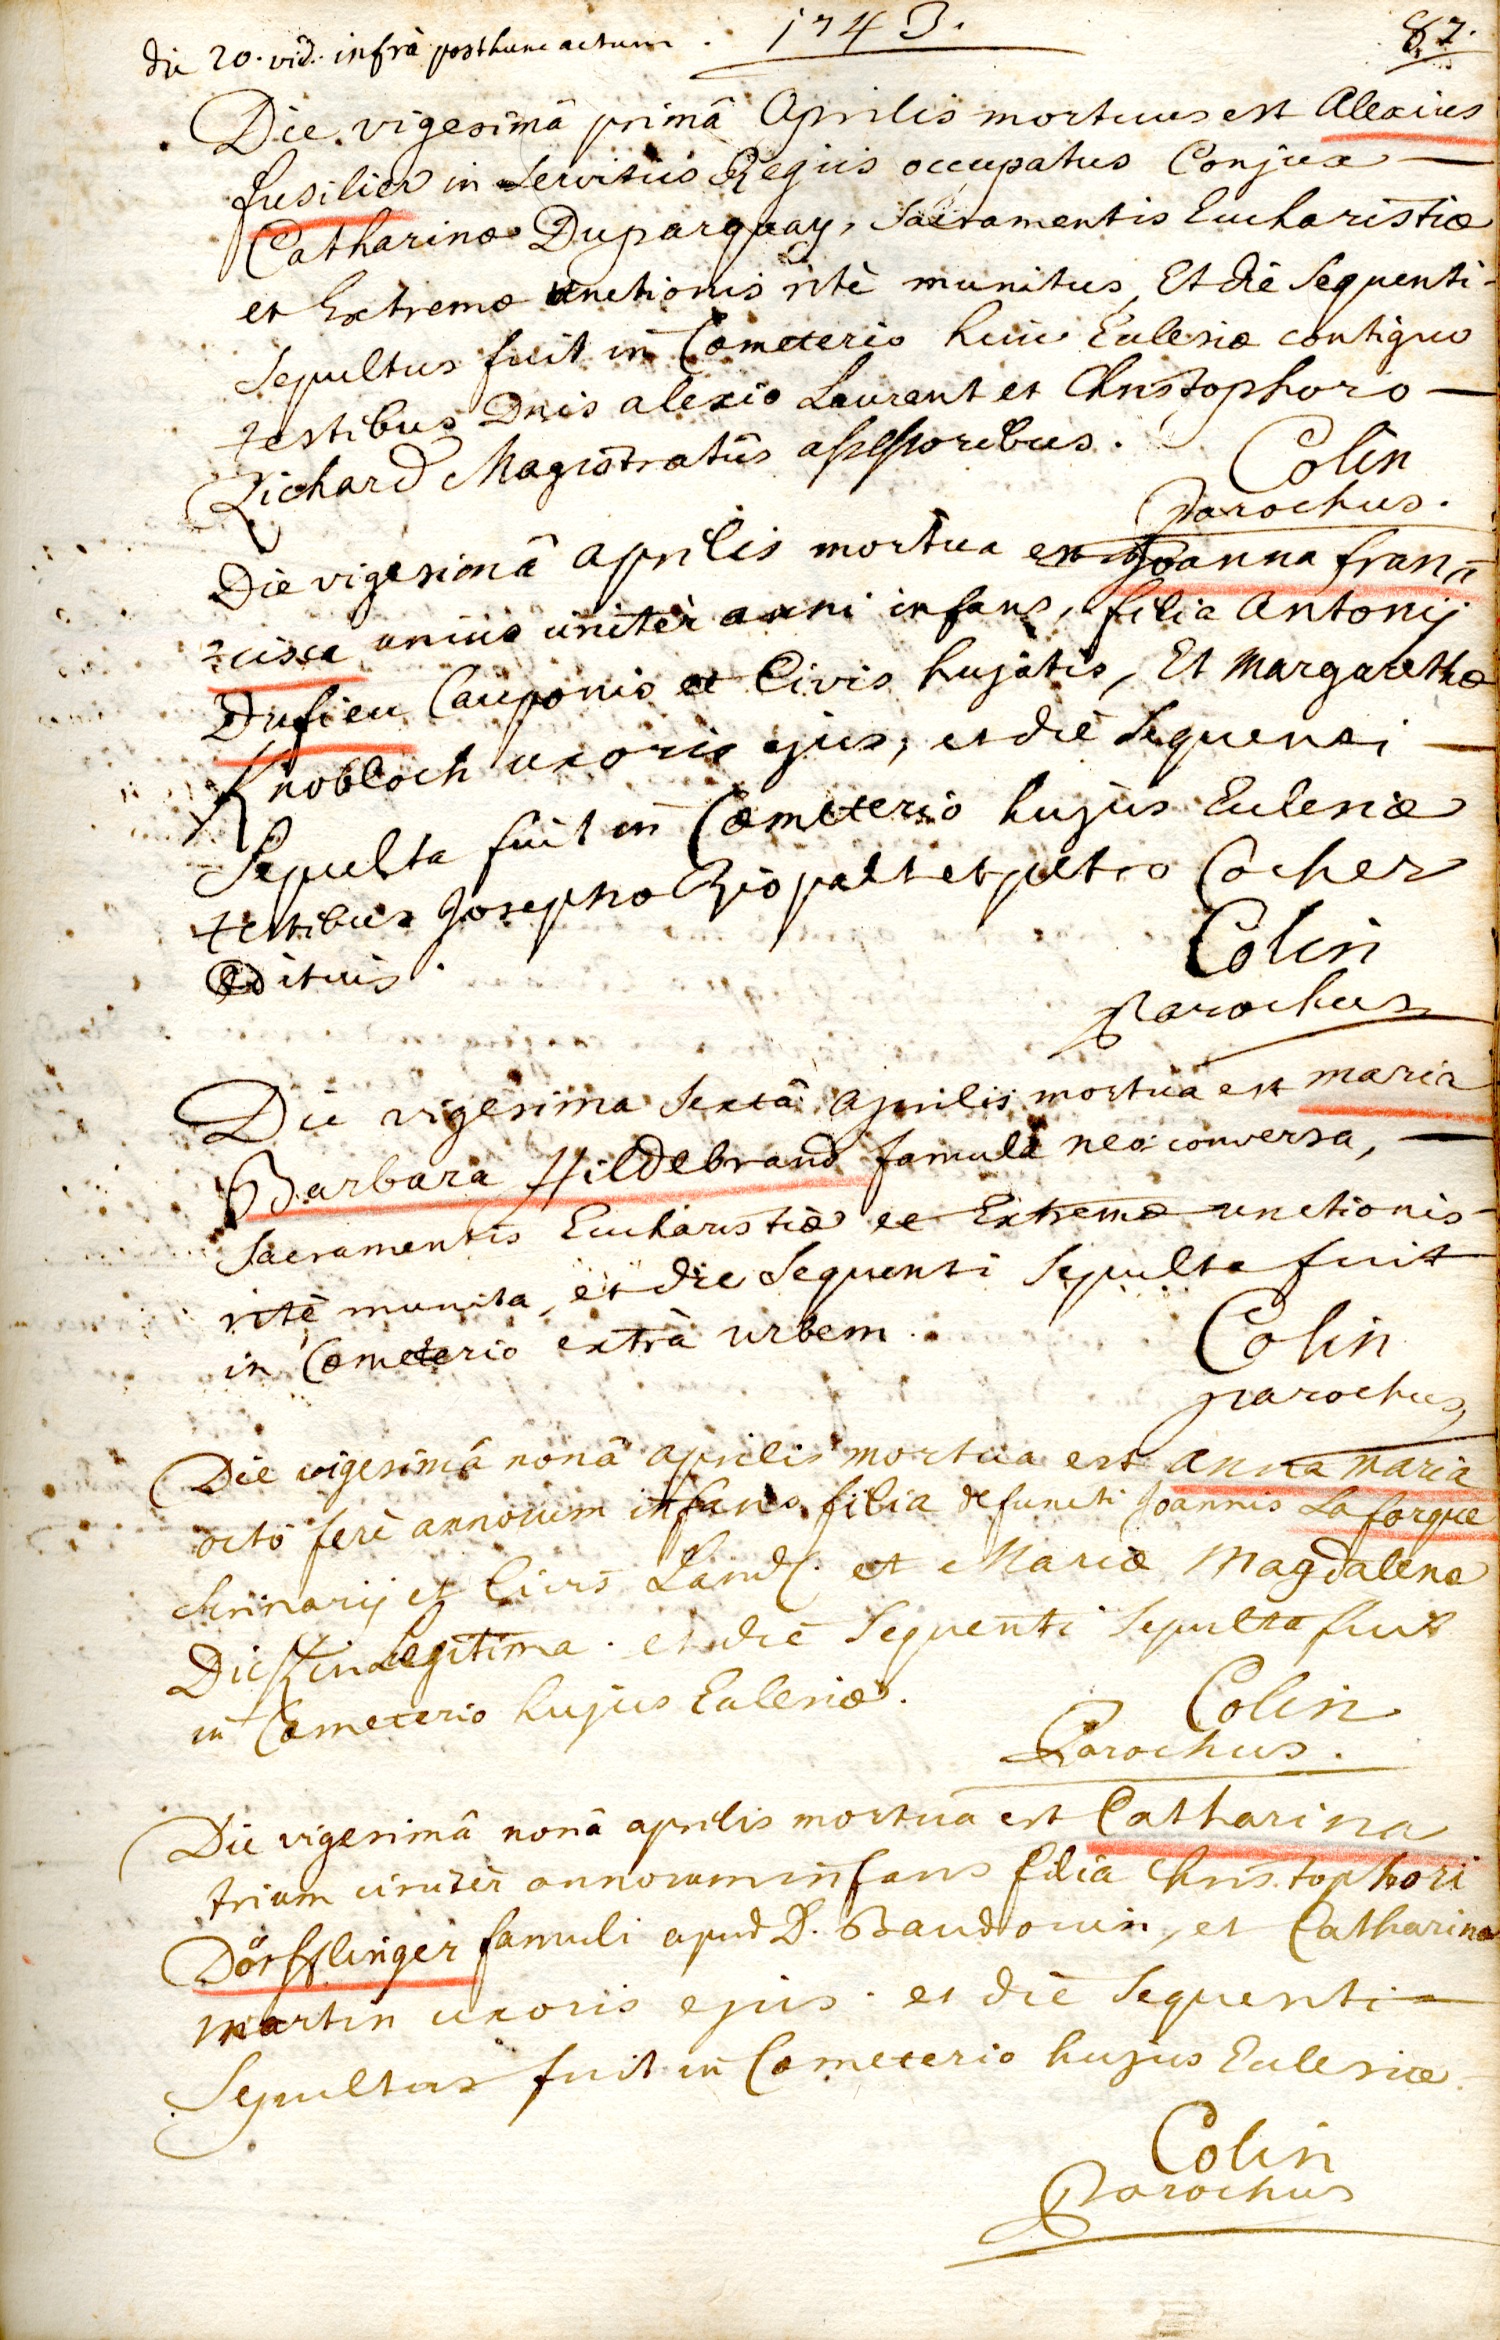 die 20. vid. infrà post hunc actum. 1743. 87.
Die vigesimâ primâ Aprilis mortuus est Alexius
fusilier in Servitiis Regiis occupatus Conjux —
Catharinæ Duparquay, Sacramentis Eucharistiæ
et Extremæ unctionis ritè munitus, Et die Sequenti
Sepultus fuit in Cœmeterio huic Eclesiæ contiguo
testibus Dnis alexio Laurent et Christophoro —
Richard Magistratûs assessoribus. Colin
Parochus.
Die vigesimâ aprilis mortua est Joanna fran=
=cisca unius circitèr anni infans, filia Antonij
Dufieu Cauponis et Civis hujatis, Et Margarethæ
Knobloch uxoris ejus, et die Sequenti —
Sepulta fuit in Cœmeterio hujus Eclesiæ
testibus Josepho et petro Cocher
Ædituis. Colin
Parochus
Die vigesima Sextâ Aprilis mortua est maria
Barbara Hildebrand famula neo conversa, —
Sacramentis Eucharistiæ et Extremæ unctionis
ritè munita, et die Sequenti Sepulta fuit
in Cœmeterio extrà urbem. Colin
parochus
Die vigesimâ nonâ aprilis mortua est anna maria
octo ferè annorum infans filia defuncti Joannis Laforgue
et Civis Land. et Mariæ Magdalenæ
Dickin Legitima. et die Sequenti Sepulta fuit
in Cœmeterio hujus Eclesiæ. Colin
Parochus.
Die vigesimâ nonâ aprilis mortua est Catharina
trium circitèr annorum infans filia Christophori
Dörfflinger famuli apud D. Baudouin, et Catharinæ
martin uxoris ejus. et die Sequenti —
Sepultus fuit in Cœmeterio hujus Eclesiæ
Colin
Parochus